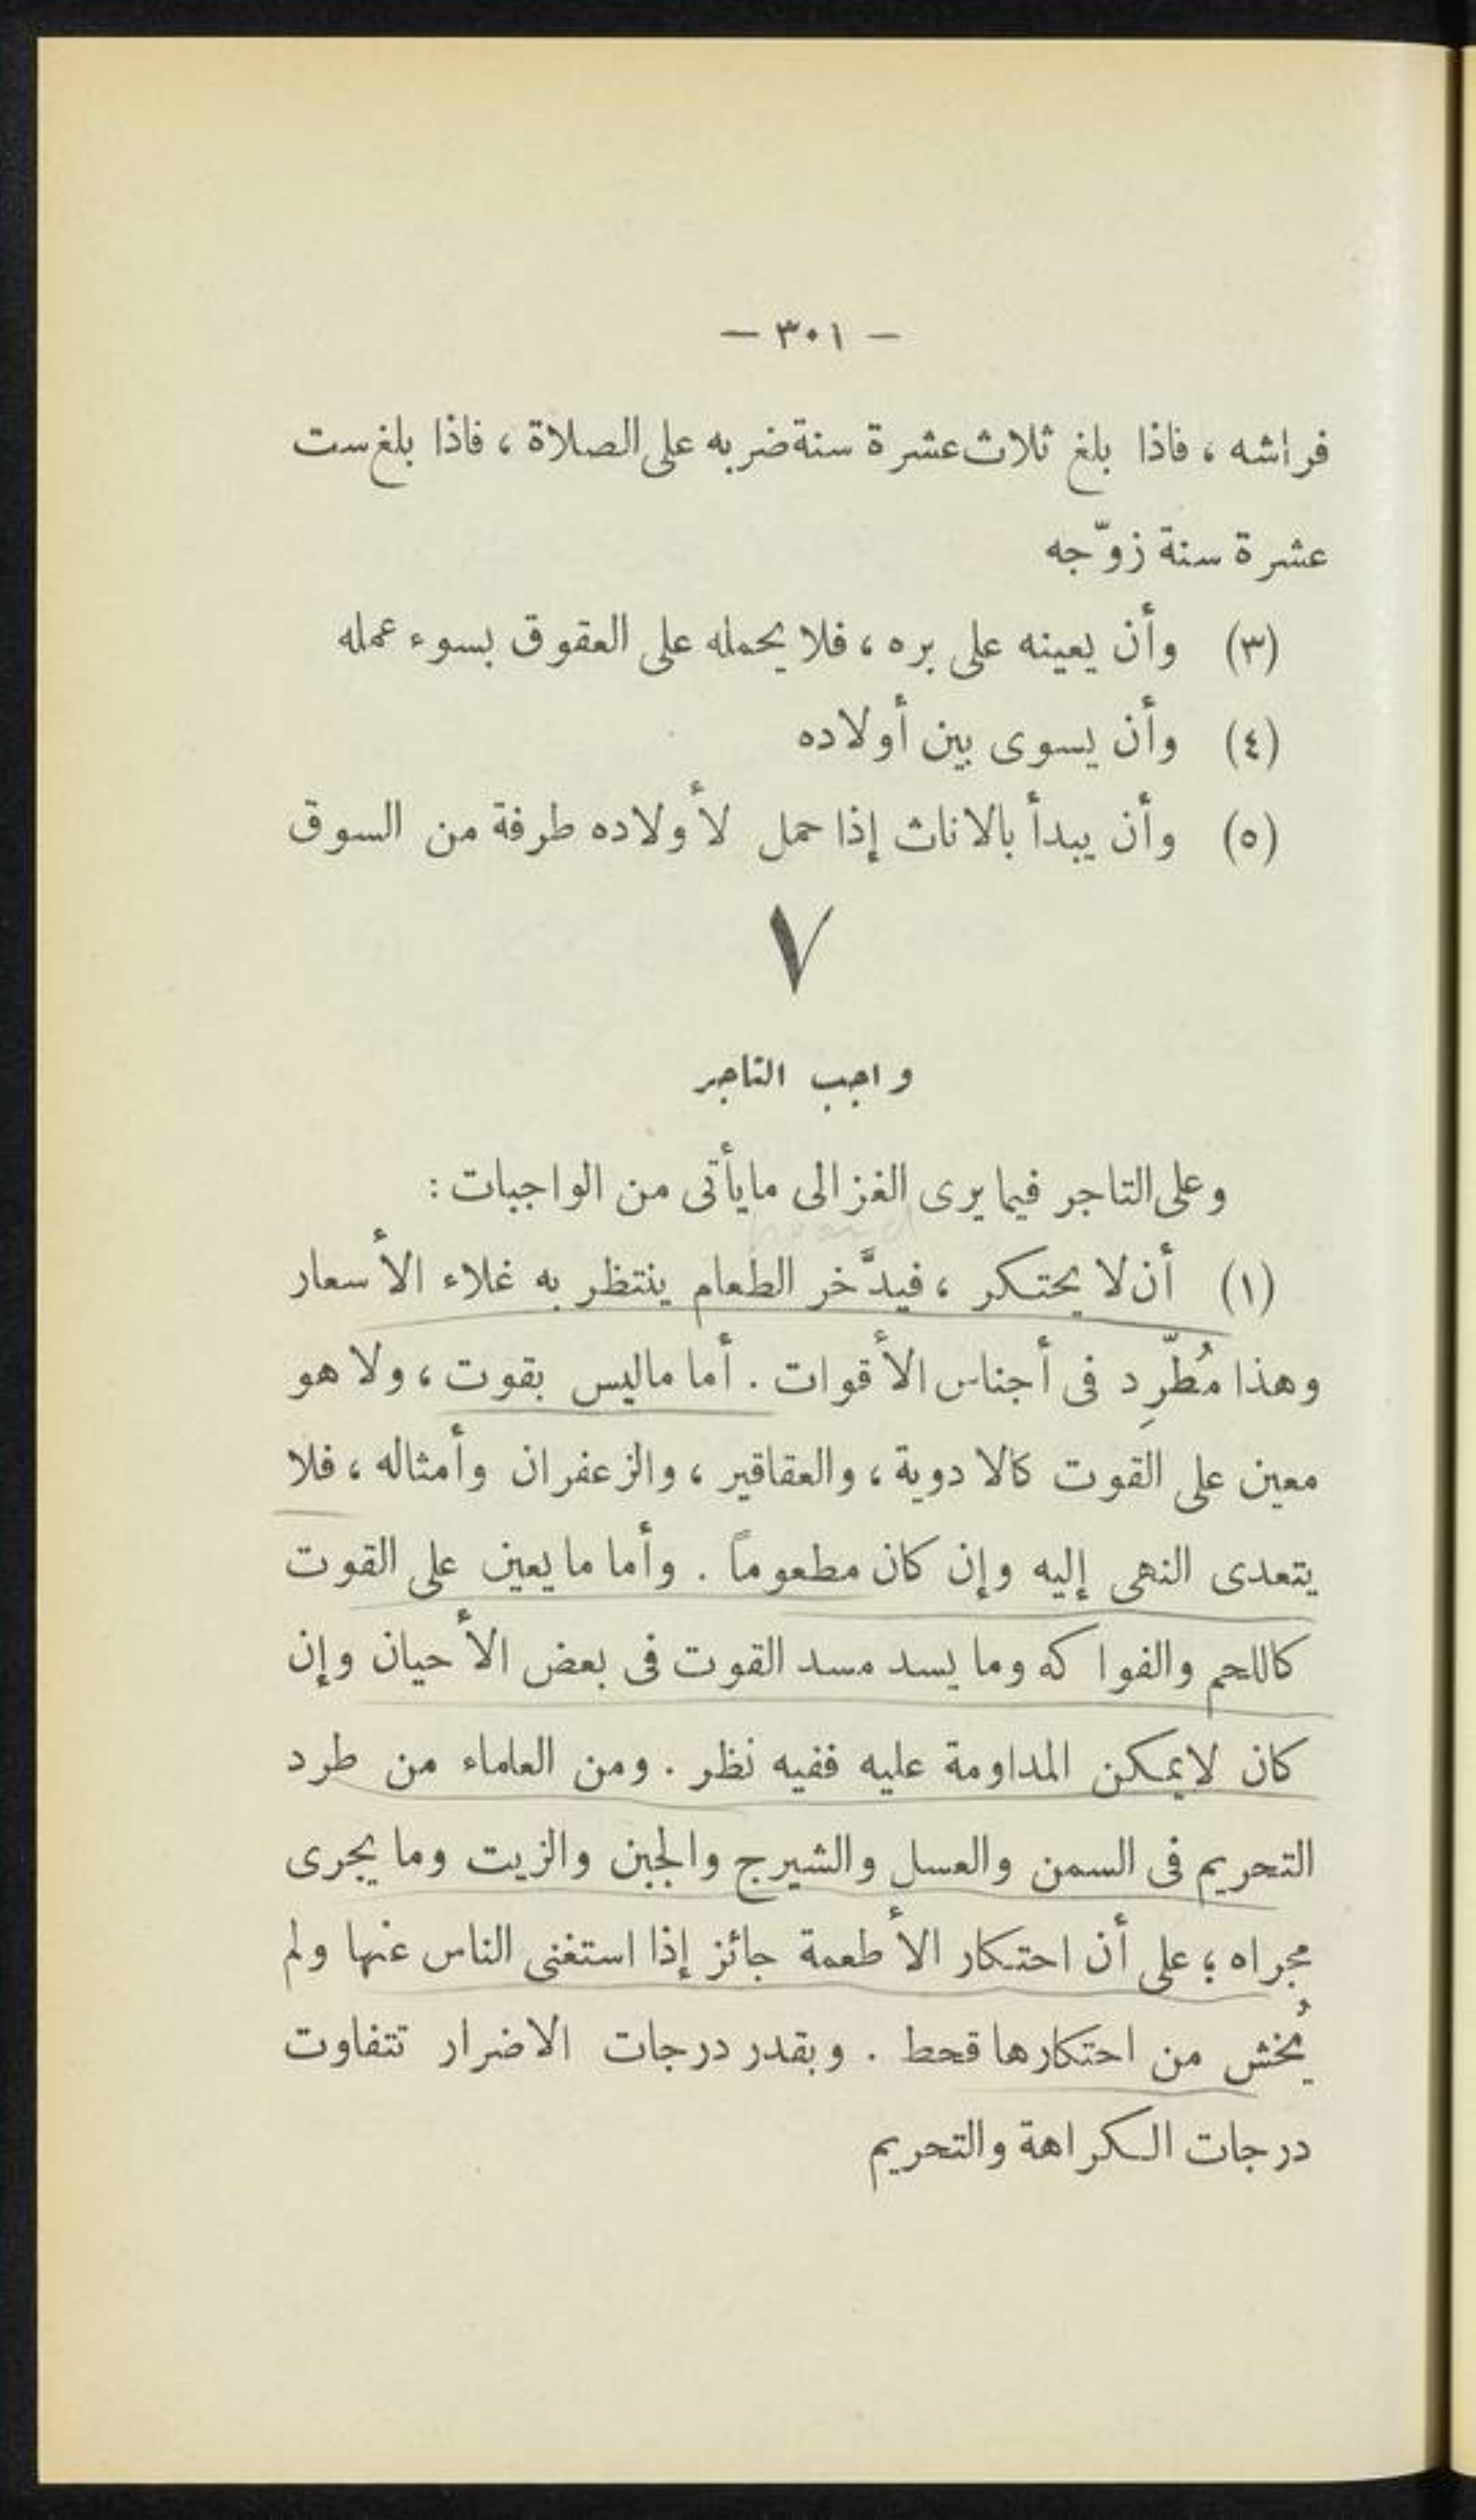 — ٣٠١ —
فراشه ، فاذا بلغ ثلاث عشرة سنة ضربه على الصلاة ، فاذا بلغ ست
عشرة سنة زوّجه
(٣) وأن يعينه على بره ، فلا يحمله على العقوق بسوء عمله
(٤) وأن يسوى بين أولاده
(٥) وأن يبدأ بالاناث إذا حمل لأولاده طرفة من السوق
٧
واجب التاجر
وعلى التاجر فيما يرى الغزالى ما يأتى من الواجبات :
(١) أن لا يحتكر ، فيدَّخر الطعام ينتظر به غلاء الأسعار
وهذا مُطّرِد فى أجناس الأقوات . أما ماليس بقوت ، ولا هو
معين على القوت كالادوية ، والعقاقير ، والزعفران وأمثاله ، فلا
يتعدى النهى إليه وإن كان مطعوماً . وأما ما يعين على القوت
كاللحم والفواكه وما يسد مسد القوت فى بعض الأحيان وإن
كان لايمكن المداومة عليه ففيه نظر . ومن العلماء من طرد
التحريم فى السمن والعسل والشيرج والجبن والزيت وما يجرى
مجراه ؛ على أن احتكار الأطعمة جائز إذا استغنى الناس عنها ولم
يُخش من احتكارها قحط . وبقدر درجات الاضرار تتفاوت
درجات الكراهة والتحريم